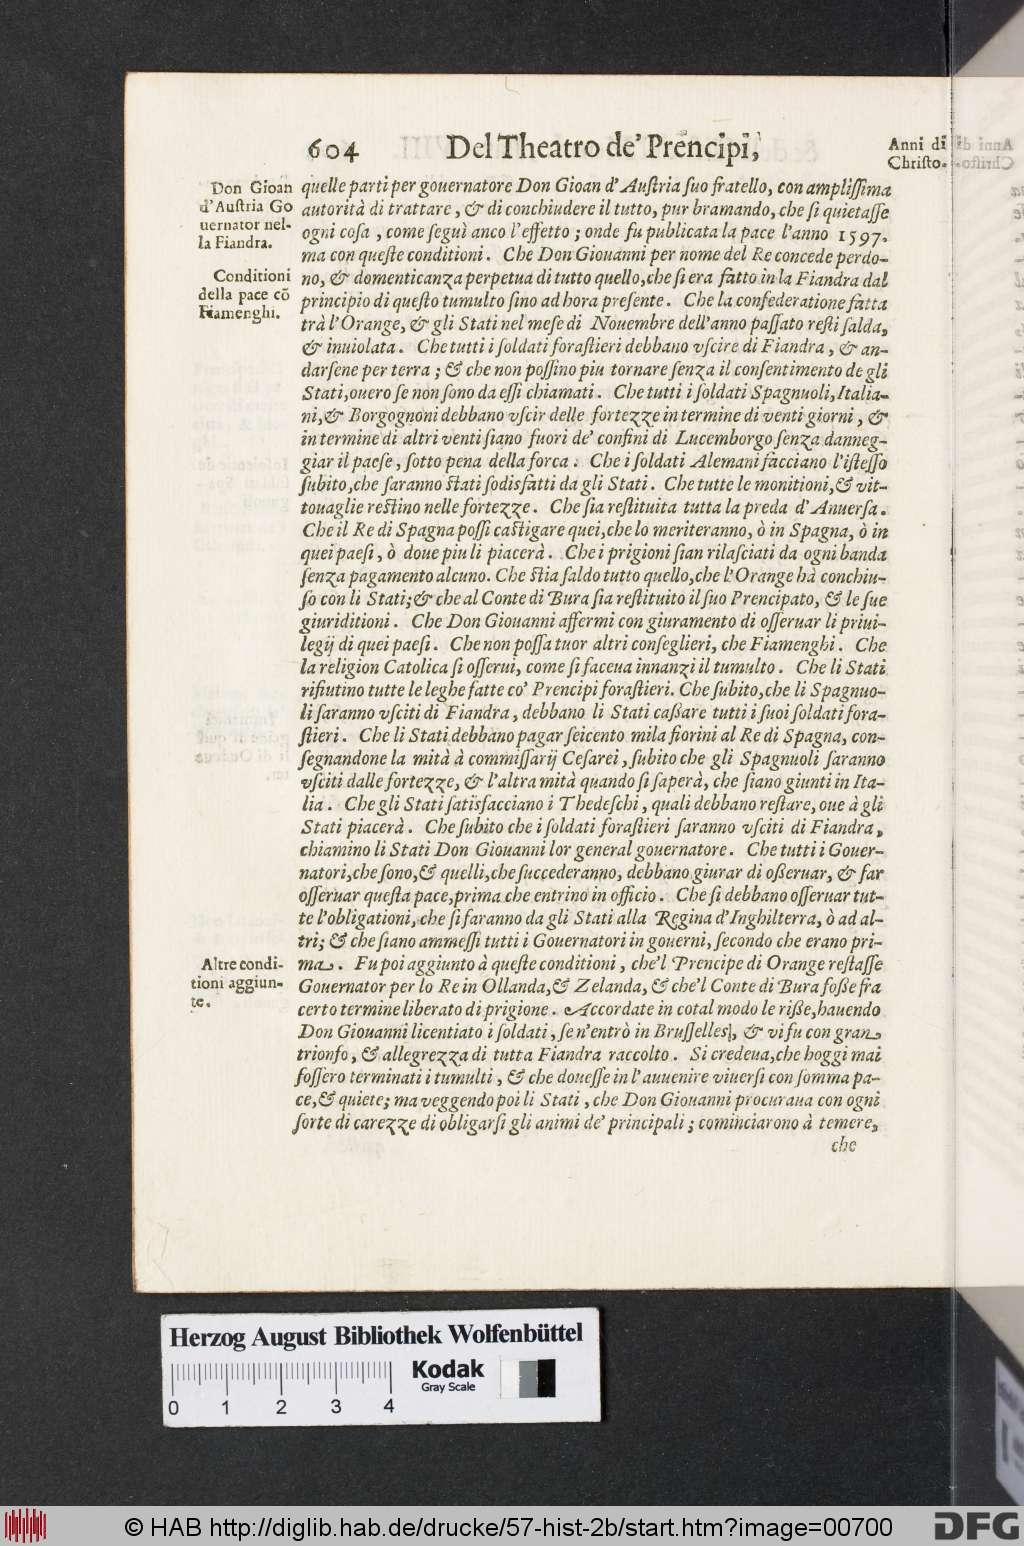 604 Del Theatro de' Prencipi,
Anni di
Christo.
Don Gioan
d'Austria Go
uernator nel-
la Fiandra.
Conditioni
della pace cõ
Fiamenghi.
quelle parti per gouernatore Don Gioan d'Auſtria ſuo fratello, con ampliſſima
autorità di trattare, & di conchiudere il tutto, pur bramando, che ſi quietaſſe
ogni coſa, come ſeguì anco l'effetto; onde fu publicata la pace l'anno 1597.
ma con queſte conditioni. Che Don Giouanni per nome del Re concede perdo-
no, & domenticanza perpetua di tutto quello, che ſi era fatto in la Fiandra dal
principio di queſto tumulto ſino ad hora preſente. Che la confederatione fatta
trà l'Orange, & gli Stati nel meſe di Nouembre dell'anno paſſato reſti ſalda,
& inuiolata. Che tutti i ſoldati foraſtieri debbano vſcire di Fiandra, & an-
darſene per terra; & che non poſſino piu tornare ſenza il conſentimento de gli
Stati, ouero ſe non ſono da eſſi chiamati. Che tutti i ſoldati Spagnuoli, Italia-
ni, & Borgognoni debbano vſcir delle fortezze in termine di venti giorni, &
in termine di altri venti ſiano fuori de' confini di Lucemborgo ſenza danneg-
giar il paeſe, ſotto pena della forca. Che i ſoldati Alemani facciano l'iſteſſo
ſubito, che ſaranno ſtati ſodisfatti da gli Stati. Che tutte le monitioni, & vit-
touaglie reſtino nelle fortezze. Che ſia reſtituita tutta la preda d'Anuerſa.
Che il Re di Spagna poſſi caſtigare quei, che lo meriteranno, ò in Spagna, ò in
quei paeſi, ò doue piu li piacerà. Che i prigioni ſian rilaſciati da ogni banda
ſenza pagamento alcuno. Che ſtia ſaldo tutto quello, che l'Orange hà conchiu-
ſo con li Stati; & che al Conte di Bura ſia reſtituito il ſuo Prencipato, & le ſue
giuriditioni. Che Don Giouanni affermi con giuramento di oſſeruar li priui-
legij di quei paeſi. Che non poſſa tuor altri conſeglieri, che Fiamenghi. Che
la religion Catolica ſi oſſerui, come ſi faceua innanzi il tumulto. Che li Stati
rifiutino tutte le leghe fatte co' Prencipi foraſtieri. Che ſubito, che li Spagnuo-
li ſaranno vſciti di Fiandra, debbano li Stati caſſare tutti i ſuoi ſoldati fora-
ſtieri. Che li Stati debbano pagar ſeicento mila fiorini al Re di Spagna, con-
ſegnandone la mità à commiſſarij Ceſarei, ſubito che gli Spagnuoli ſaranno
vſciti dalle fortezze, & l'altra mità quando ſi ſaperà, che ſiano giunti in Ita-
lia. Che gli Stati ſatisfacciano i Thedeſchi, quali debbano reſtare, oue à gli
Stati piacerà. Che ſubito che i ſoldati foraſtieri ſaranno vſciti di Fiandra,
chiamino li Stati Don Giouanni lor general gouernatore. Che tutti i Gouer-
natori, che ſono, & quelli, che ſuccederanno, debbano giurar di oſſeruar, & far
oſſeruar queſta pace, prima che entrino in officio. Che ſi debbano oſſeruar tut-
te l'obligationi, che ſi faranno da gli Stati alla Regina d'Inghilterra, ò ad al-
tri; & che ſiano ammeſſi tutti i Gouernatori in gouerni, ſecondo che erano pri-
ma. Fu poi aggiunto à queſte conditioni, che'l Prencipe di Orange reſtaſſe
Gouernator per lo Re in Ollanda, & Zelanda, & che'l Conte di Bura foſſe fra
certo termine liberato di prigione. Accordate in cotal modo le riſſe, hauendo
Don Giouanni licentiato i ſoldati, ſe n'entrò in Bruſſelles, & vi fu con gran
trionfo, & allegrezza di tutta Fiandra raccolto. Si credeua, che hoggi mai
foſſero terminati i tumulti, & che doueſſe in l'auuenire viuerſi con ſomma pa-
ce, & quiete; ma veggendo poi li Stati, che Don Giouanni procuraua con ogni
ſorte di carezze di obligarſi gli animi de' principali; cominciarono à temere,
che
Altre condi-
tioni aggiun-
te.
Herzog August Bibliothek Wolfenbüttel
Kodak
Gray Scale
0 1 2 3 4
© HAB http://diglib.hab.de/drucke/57-hist-2b/start.htm?image=00700
DFG